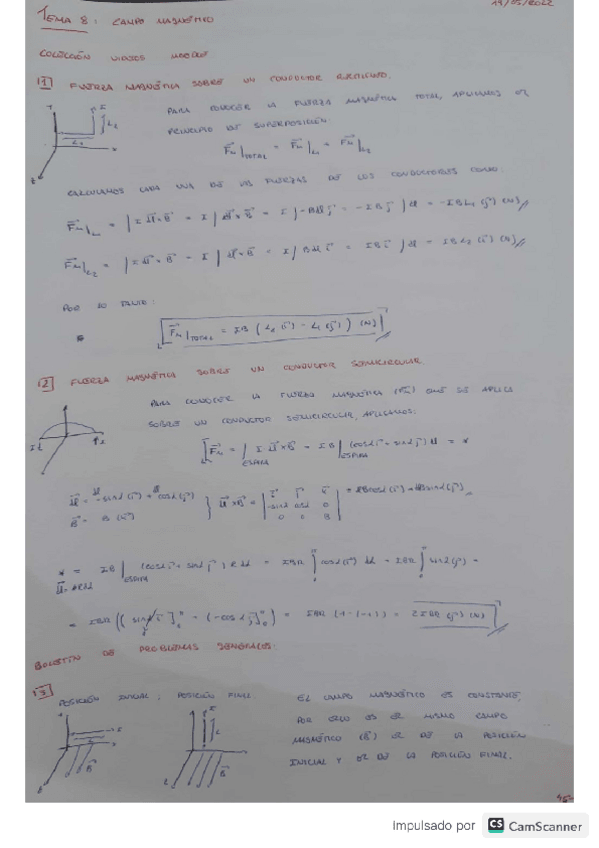 19/05/2022
TEMA 8: CAMPO MAGNÉTICO
COLECCIÓN
1 FUERZA MAGNÉTICA SOBRE UN CONDUCTOR RECTILINEO.
PARA CONOCER LA FUERZA MAGNÉTICA TOTAL, APLICAMOS EL
PRINCIPIO DE SUPERPOSICIÓN:
F⃗m|TOTAL = F⃗m|L1 + F⃗m|L2
CALCULAMOS CADA UNA DE LAS FUERZAS DE LOS CONDUCTORES COMO:
F⃗m|L1 = ∫ I dl⃗ × B⃗ = I ∫ dl⃗ × B⃗ = I ∫ -B dl j⃗ = -IB j⃗ ∫ dl = -IBL1 (j⃗) (N)
F⃗m|L2 = ∫ I dl⃗ × B⃗ = I ∫ dl⃗ × B⃗ = I ∫ B dl i⃗ = IB i⃗ ∫ dl = IBL2 (i⃗) (N)
POR LO TANTO:
F⃗m|TOTAL = IB (L2 i⃗ - L1 j⃗) (N)
2 FUERZA MAGNÉTICA SOBRE UN CONDUCTOR SEMICIRCULAR.
PARA CONOCER LA FUERZA MAGNÉTICA (F⃗m) QUE SE APLICA
SOBRE UN CONDUCTOR SEMICIRCULAR, APLICAMOS:
F⃗m = ∫ESPIRA I dl⃗ × B⃗ = IB ∫ESPIRA (cosα i⃗ + sinα j⃗) dl = *
B⃗ = B (k⃗)
* = IB ∫ESPIRA (cosα i⃗ + sinα j⃗) R dα = IBR ∫ cosα (i⃗) dα + IBR ∫ sinα (j⃗) =
= IBR (1-(-1)) = 2IBR (j⃗) (N)
BOLETÍN DE PROBLEMAS GENERALES:
3 POSICIÓN INICIAL; POSICIÓN FINAL
EL CAMPO MAGNÉTICO ES CONSTANTE,
POR ELLO ES EL MISMO CAMPO
MAGNÉTICO (B⃗) EL DE LA POSICIÓN
INICIAL Y EL DE LA POSICIÓN FINAL.
Impulsado por CS CamScanner